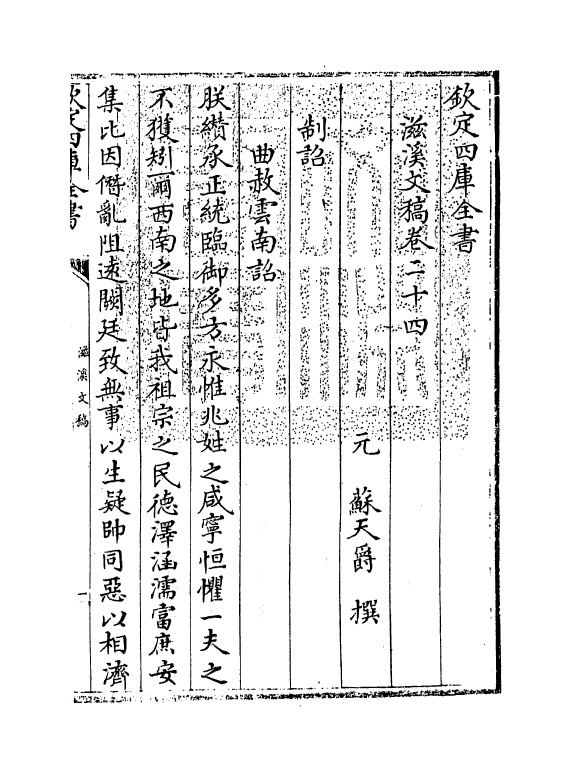 欽定四庫全書
滋溪文稿卷二十四
元　蘇天爵　撰
制詔
曲赦雲南詔
朕纘承正統臨御多方永惟兆姓之咸寧恒懼一夫之
不獲矧爾西南之地皆我祖宗之民德澤涵濡富庶安
集比因僭亂阻遠闕廷致無事以生疑帥同惡以相濟
欽定四庫全書
滋溪文稿
一